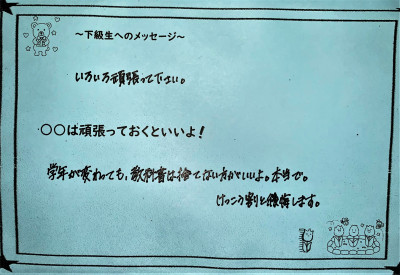 〜下級生へのメッセージ〜
いろいろ頑張って下さい。
〇〇は頑張っておくといいよ!
学年が変わっても、教科書は捨てない方がいいよ。本当で。
けっこう割と後悔します。